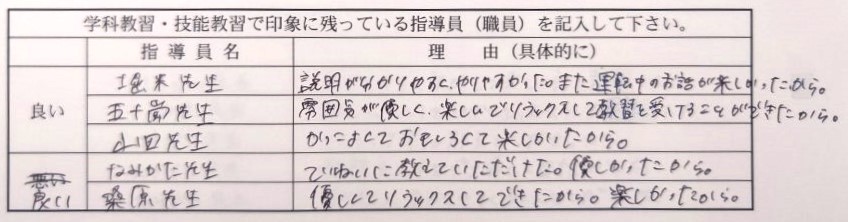 学科教習・技能教習で印象に残っている指導員（職員）を記入して下さい。
指導員名 理由（具体的に）
良い 堀米先生 説明が分かりやすく、やりやすかった。また運転中のお話が楽しかったから。
五十嵐先生 雰囲気が優しく、楽しんでリラックスして教習を受けることができたから。
山田先生 かっこよくておもしろくて楽しかったから。
悪い 良い なみかた先生 ていねいに教えていただけた。優しかったから。
桑原先生 優しくてリラックスしてできたから。楽しかったから。